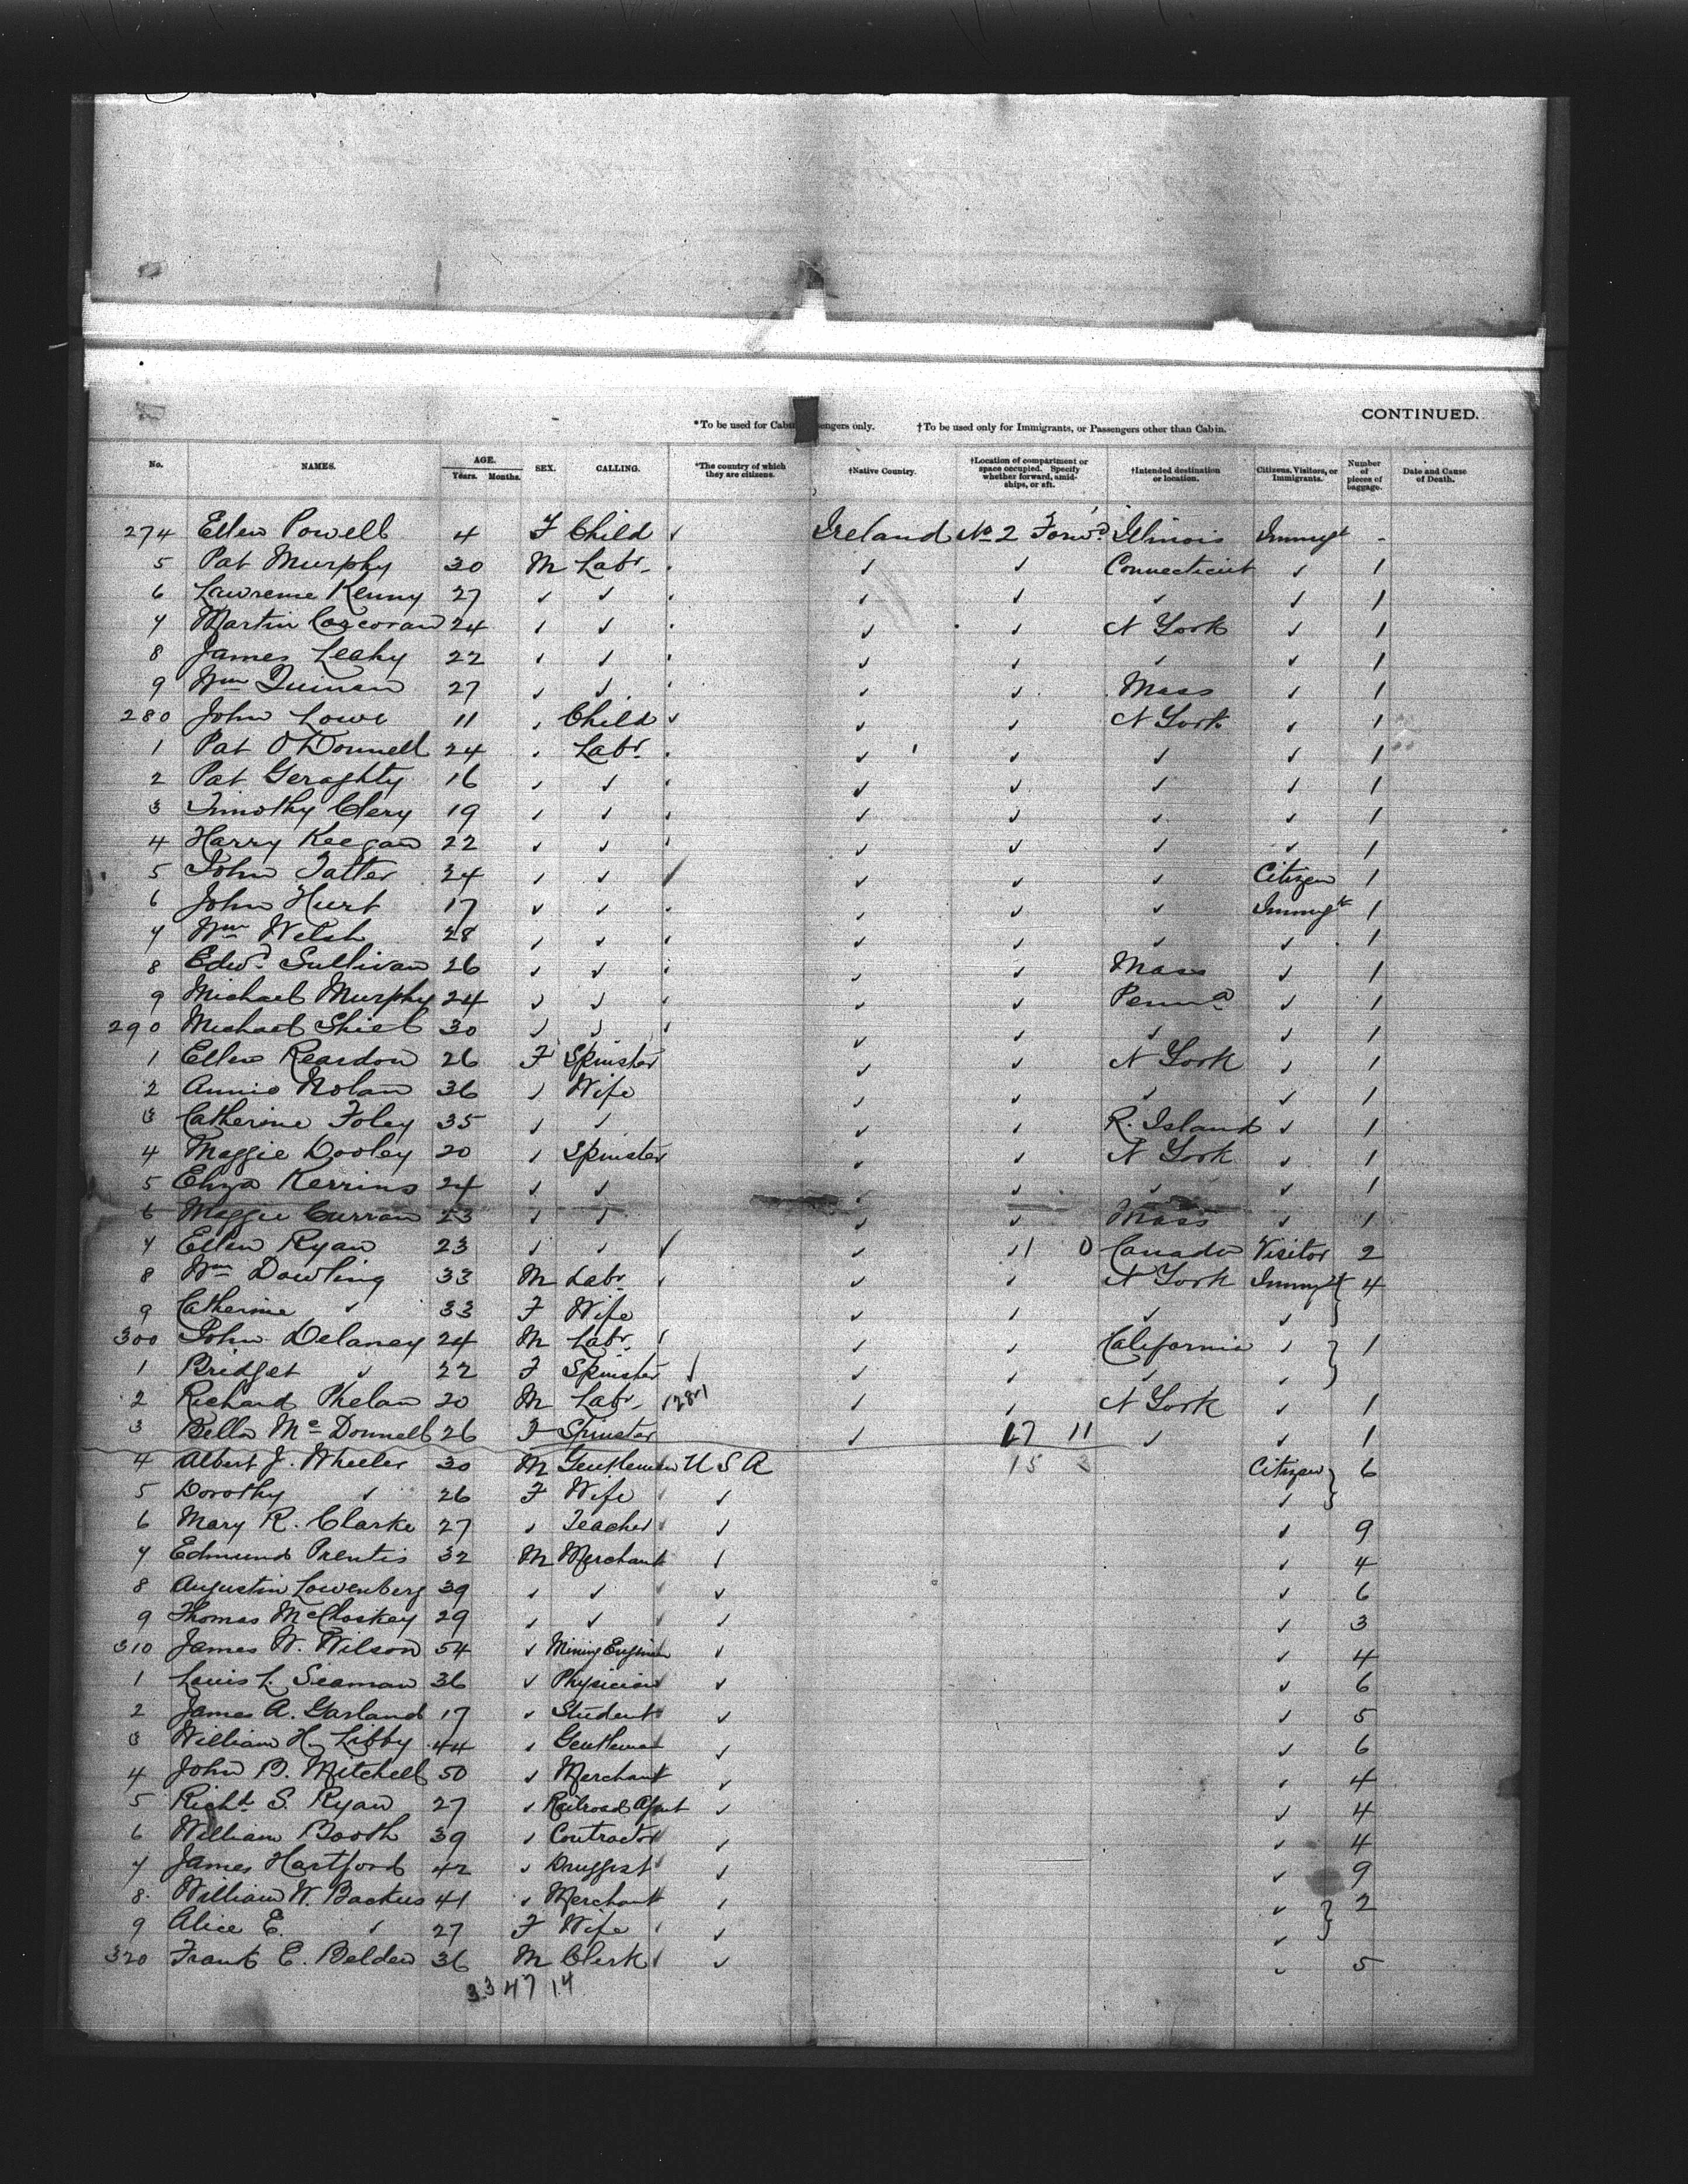 CONTINUED.
*To be used for Cabin Passengers only. †To be used only for Immigrants, or Passengers other than Cabin.
No. NAMES. AGE. Years. Months. SEX. CALLING. *The country of which they are citizens. †Native Country. †Location of compartment or space occupied. Specify whether forward, amidships, or aft. †Intended destination or location. Citizens, Visitors, or Immigrants. Number of pieces of baggage. Date and Cause of Death.
274 Ellen Powell 4 F Child ✓ Ireland No 2 Forwd. Illinois Immigt -
5 Pat Murphy 30 M Labr. ✓ ✓ Connecticut ✓ 1
6 Lawrence Kenny 27 ✓ ✓ ✓ ✓ ✓ ✓ 1
7 Martin Corcoran 24 ✓ ✓ ✓ ✓ N York ✓ 1
8 James Leahy 22 ✓ ✓ ✓ ✓ ✓ ✓ 1
9 Wm 27 ✓ ✓ ✓ ✓ Mass ✓ 1
280 John Lowe 11 ✓ Child ✓ ✓ ✓ N York ✓ 1
1 Pat O'Donnell 24 ✓ Labr. ✓ ✓ ✓ ✓ 1
2 Pat Geraghty 16 ✓ ✓ ✓ ✓ ✓ ✓ 1
3 Timothy Clery 19 ✓ ✓ ✓ ✓ ✓ ✓ 1
4 Harry Keegan 22 ✓ ✓ ✓ ✓ ✓ ✓ 1
5 John 24 ✓ ✓ ✓ ✓ ✓ ✓ Citizen 1
6 John Hurt 17 ✓ ✓ ✓ ✓ ✓ Immigt 1
7 Wm Welsh 28 ✓ ✓ ✓ ✓ ✓ ✓ 1
8 Edwd. Sullivan 26 ✓ ✓ ✓ ✓ Mass ✓ 1
9 Michael Murphy 24 ✓ ✓ ✓ ✓ Penna ✓ 1
290 Michael Shiel 30 ✓ ✓ ✓ ✓ ✓ ✓ 1
1 Ellen Reardon 26 F Spinster ✓ ✓ N York ✓ 1
2 Annie Nolan 36 ✓ Wife ✓ ✓ ✓ ✓ 1
3 Catherine Foley 35 ✓ ✓ ✓ ✓ R. Island ✓ 1
4 Maggie Dooley 20 ✓ Spinster ✓ ✓ N York ✓ 1
5 Eliza Kerrins 24 ✓ ✓ ✓ ✓ ✓ ✓ 1
6 Maggie Curran 23 ✓ ✓ ✓ ✓ Mass ✓ 1
7 Ellen Ryan 23 ✓ ✓ ✓ ✓ ✓ 1 0 Canada Visitor 2
8 Wm Dowling 33 M Labr ✓ ✓ N York Immigt } 4
9 Catherine ✓ 33 F Wife ✓ ✓ ✓ ✓ }
300 John Delaney 24 M Labr. ✓ ✓ California ✓ } 1
1 Bridget ✓ 22 F Spinster ✓ ✓ ✓ ✓ ✓ }
2 Richard Phelan 20 M Labr. ✓ ✓ N York ✓ 1
3 Bella McDonnell 26 F Spinster ✓ 17 11 ✓ ✓ 1
4 Albert J. Wheeler 30 M Gentleman U S A 15 3 Citizen } 6
5 Dorothy ✓ 26 F Wife ✓ ✓ }
6 Mary R. Clarke 27 ✓ Teacher ✓ ✓ 9
7 Edmund Prentis 32 M Merchant ✓ ✓ 4
8 Augustin Lowenberg 39 ✓ ✓ ✓ ✓ 6
9 Thomas McCloskey 29 ✓ ✓ ✓ ✓ 3
310 James W. Wilson 54 ✓ Mining Engineer ✓ ✓ 4
1 Louis L. Seaman 36 ✓ Physician ✓ ✓ 6
2 James A. Garland 17 ✓ Student ✓ ✓ 5
3 William H. Libby 44 ✓ Gentleman ✓ ✓ 6
4 John B. Mitchell 50 ✓ Merchant ✓ ✓ 4
5 Richd. S. Ryan 27 ✓ Railroad Agent ✓ ✓ 4
6 William Booth 39 ✓ Contractor ✓ ✓ 4
7 James Hartford 42 ✓ Druggist ✓ ✓ 9
8 William W. Backus 41 ✓ Merchant ✓ ✓ } 2
9 Alice E. ✓ 27 F Wife ✓ ✓ }
320 Frank E. Belden 36 M Clerk ✓ ✓ 5
33 47 14